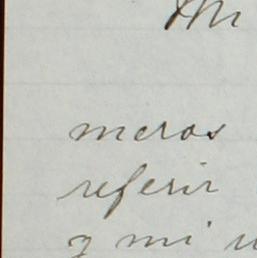 Mi
meros
referir
y mi